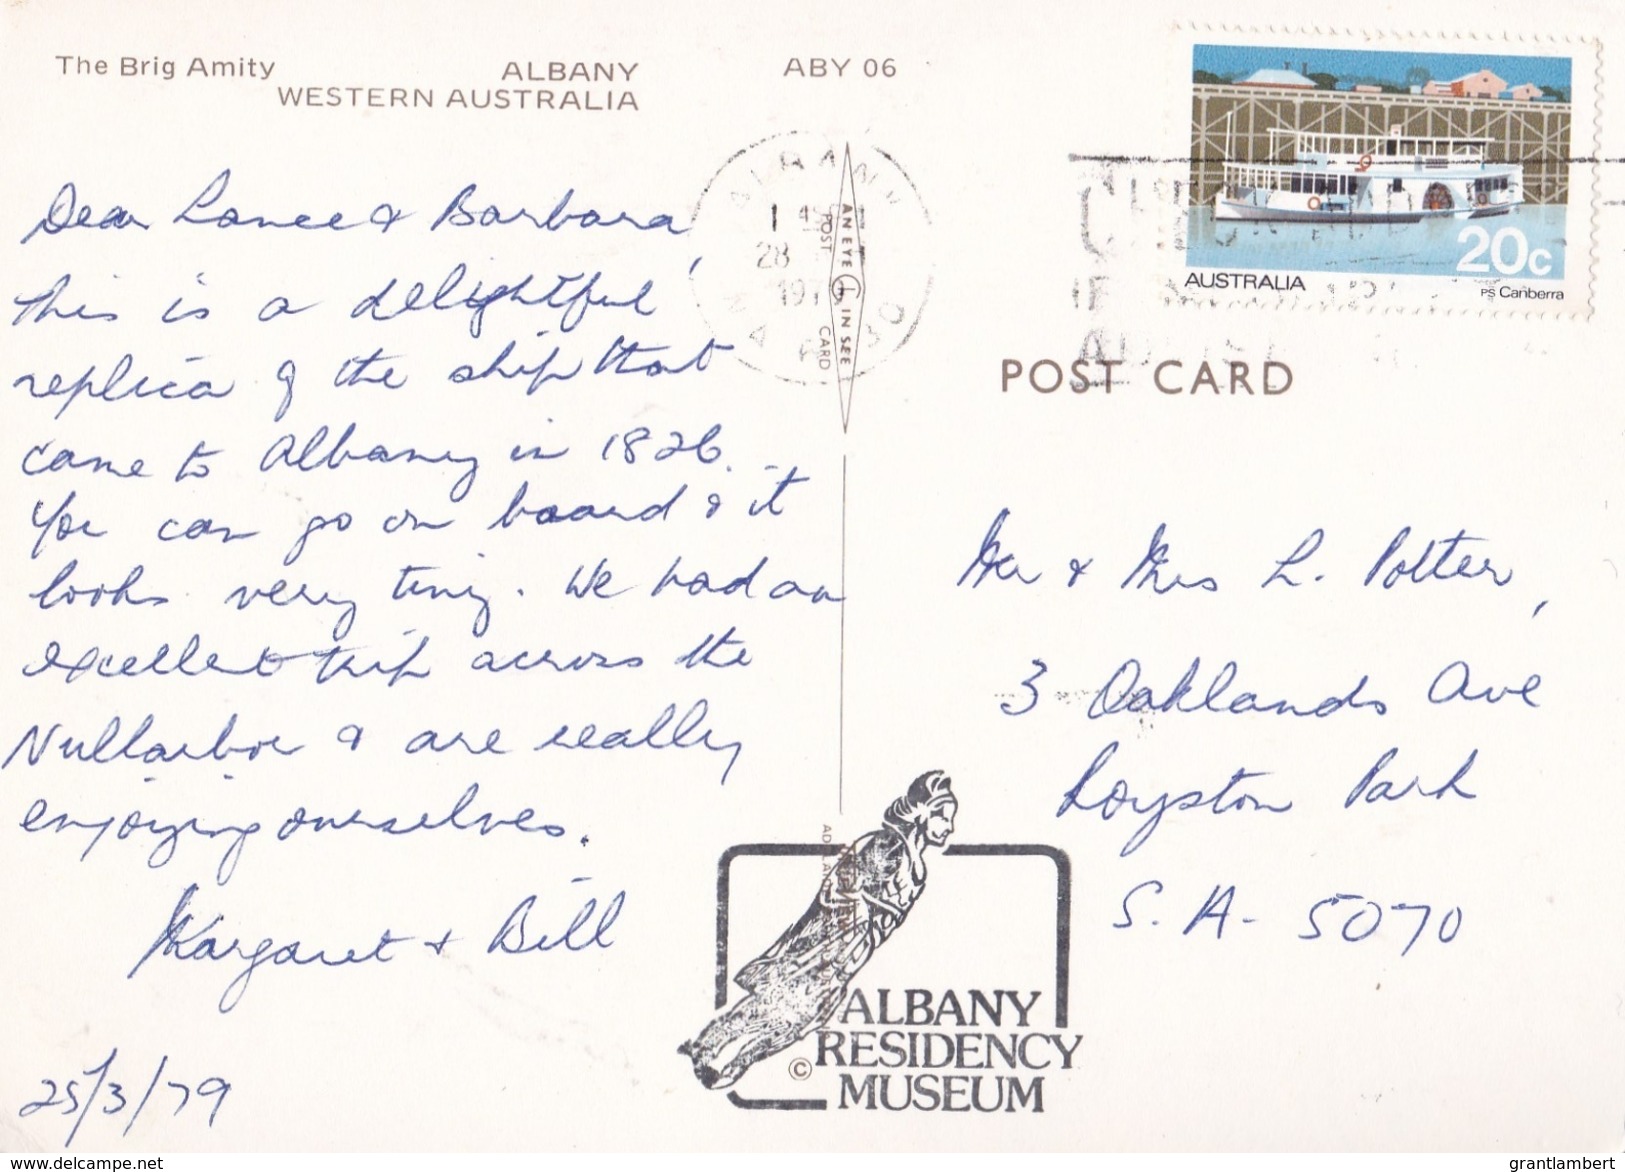 The Brig Amity
ALBANY
WESTERN AUSTRALIA
ABY 06
Dear Lance & Barbara,
This is a delightful
replica of the ship that
came to Albany in 1826.
You can go on board & it
looks very tiny. We had an
excellent trip across the
Nullarbor & are really
enjoying ourselves.
Margaret & Bill
25/3/79
28
AN EYE IN SEE
POST CARD
AUSTRALIA
20c
PS Canberra
POST CARD
Mr & Mrs L. Potter,
3 Oaklands Ave
Royston Park
S.A. 5070
ALBANY
© RESIDENCY
MUSEUM
grantlambert